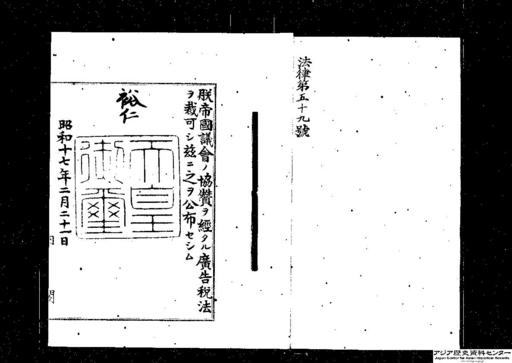 法律第五十九號
朕帝國議會ノ協贊ヲ經タル廣告税法
ヲ裁可シ茲ニ之ヲ公布セシム
裕仁
天皇
御璽
昭和十七年二月二十一日
アジア歴史資料センター
Japan Center for Asian Historical Records